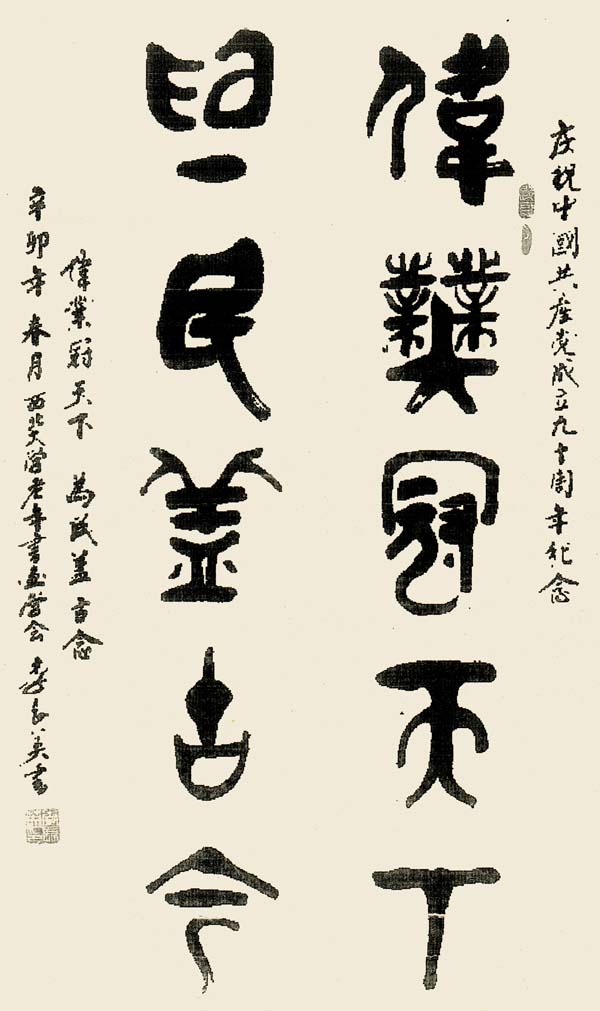 庆祝中國共産党成立九十周年纪念
偉業冠天下
為民蓋古今
偉業冠天下 為民盖古念
辛卯年春月西北大学老年書画学会 李英書